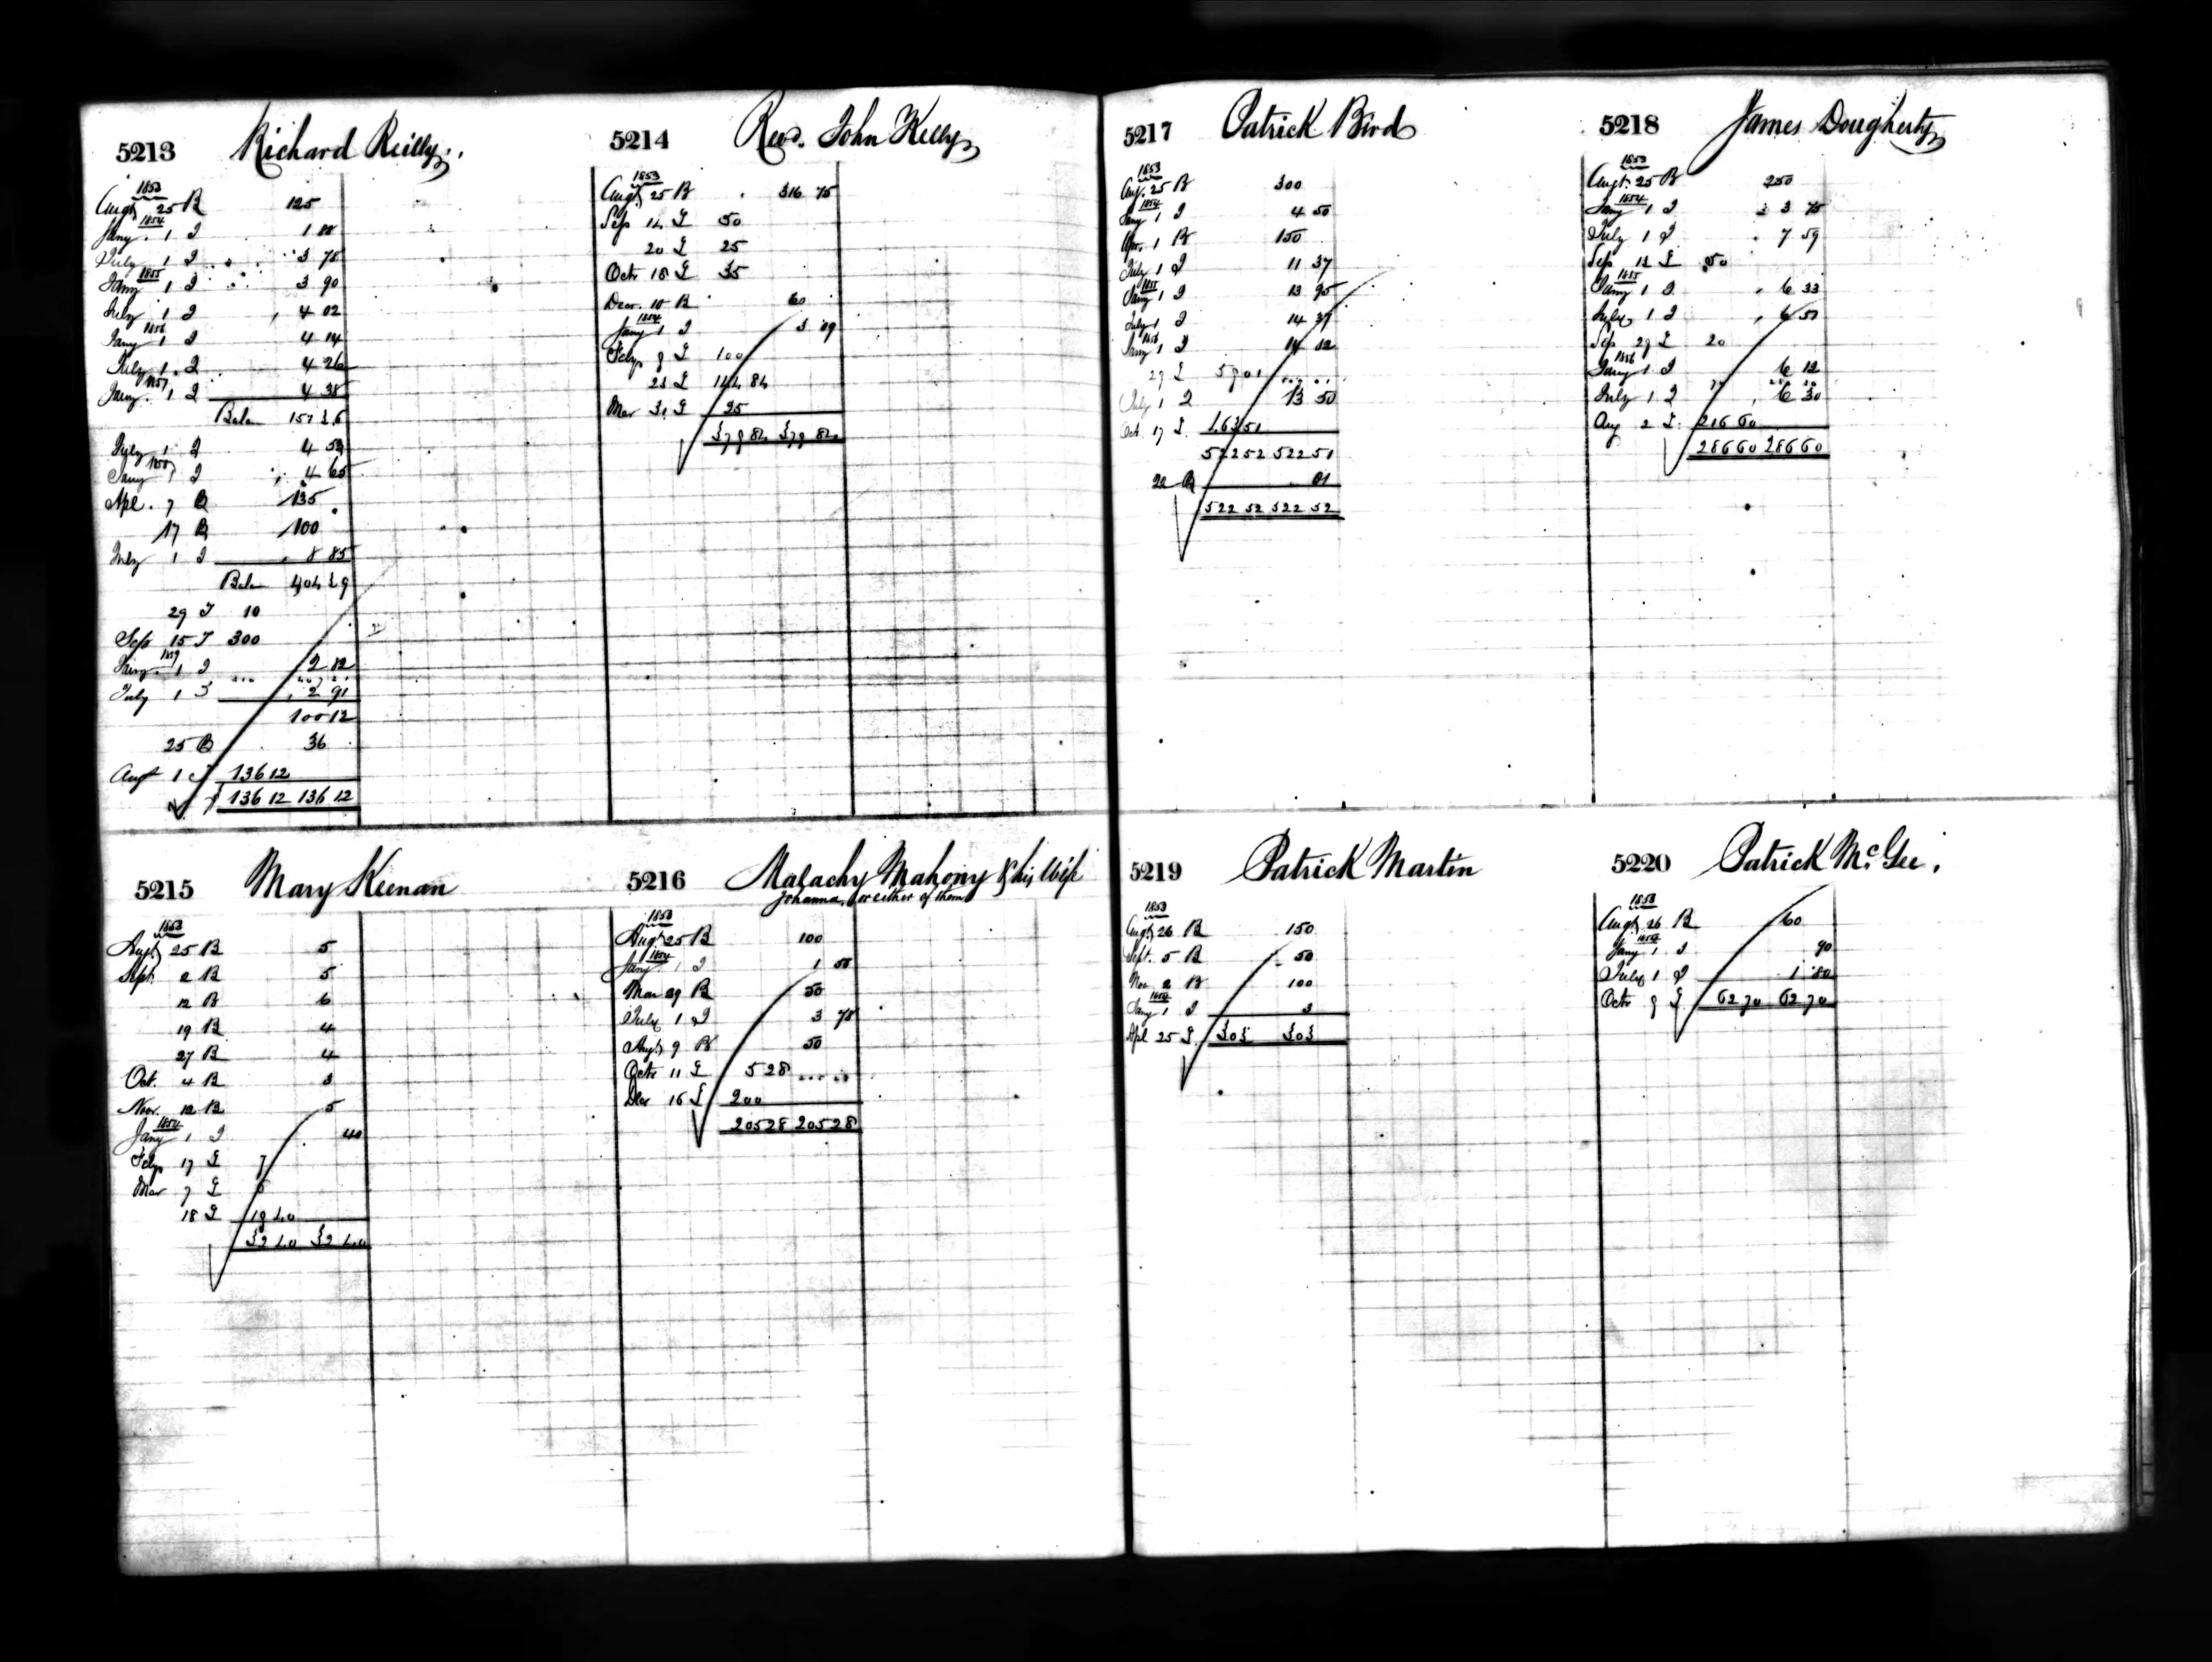 5213 Richard Reilly
1853
Augt 25 B 125
1854
Jany 1 I 1 88
July 1 I 3 78
1855
Jany 1 I 3 90
July 1 I 4 02
1856
Jany 1 I 4 14
July 1 I 4 26
1857
Jany 1 I 4 38
Balan 151 36
July 1 I 4 53
1858
Jany 1 I 4 65
Apl. 7 B 135
17 B 100
July 1 I 8 85
Balan 404 39
29 T 10
Sep 15 T 300
1859
Jany 1 I 2 82
July 1 I 2 91
100 12
25 B 36
Augt 1 T 136 12
136 12 136 12
5214 Revd. John Kelly
1853
Augt 25 B 316 75
Sep 14 T 50
20 T 25
Octr 18 T 35
Decr. 10 B 60
1854
Jany 1 I 3 09
Feby 9 T 100
23 T 144 84
Mar 31 T 25
379 84 379 84
5215 Mary Keenan
1853
Augt 25 B 5
Sept. 2 B 5
12 B 6
19 B 4
27 B 4
Oct. 4 B 3
Nov. 12 B 5
1854
Jany 1 I 40
Feby 17 T 7
Mar 7 T 6
18 T 19 40
32 40 32 40
5216 Malachy Mahony & his Wife
Johanna, or either of them
1853
Augt 25 B 100
1854
Jany 1 I 1 50
Mar 29 B 50
July 1 I 3 78
Augt 9 B 50
Octr 11 T 5 28
Decr 16 T 200
205 28 205 28
5217 Patrick Bird
1853
Augt. 25 B 300
1854
Jany 1 I 4 50
Apr. 1 B 150
July 1 I 11 37
1855
Jany 1 I 13 95
July 1 I 14 37
1856
Jany 1 I 14 82
29 T 59 01
July 1 I 13 50
Oct. 17 T 463 51
522 52 522 51
22 B 01
522 52 522 52
5218 James Dougherty
1853
Augt. 25 B 250
1854
Jany 1 I 3 75
July 1 I 7 59
Sep 12 T 50
1855
Jany 1 I 6 33
July 1 I 6 51
Sep 29 T 20
1856
Jany 1 I 6 12
July 1 I 6 30
Aug 2 T 216 60
286 60 286 60
5219 Patrick Martin
1853
Augt 26 B 150
Sept. 5 B 50
Nov 2 B 100
1854
Jany 1 I 3
Apl 25 T 303 303
5220 Patrick McGee.
1853
Augt 26 B 60
1854
Jany 1 I 90
July 1 I 1 80
Octr 9 T 62 70 62 70